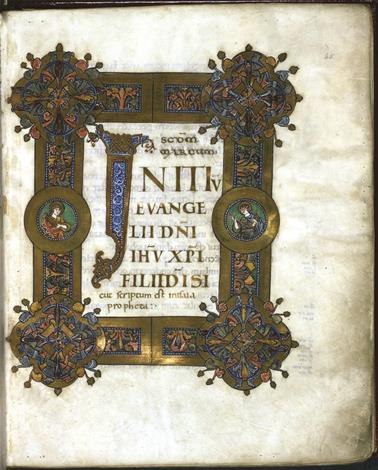 SCD̄M
MARCUM
INITIŪ
EVANGE
LII DN̄I
IHŪ XP̄I
FILII DĪ SI
cut scriptum est in isaia
propheta: